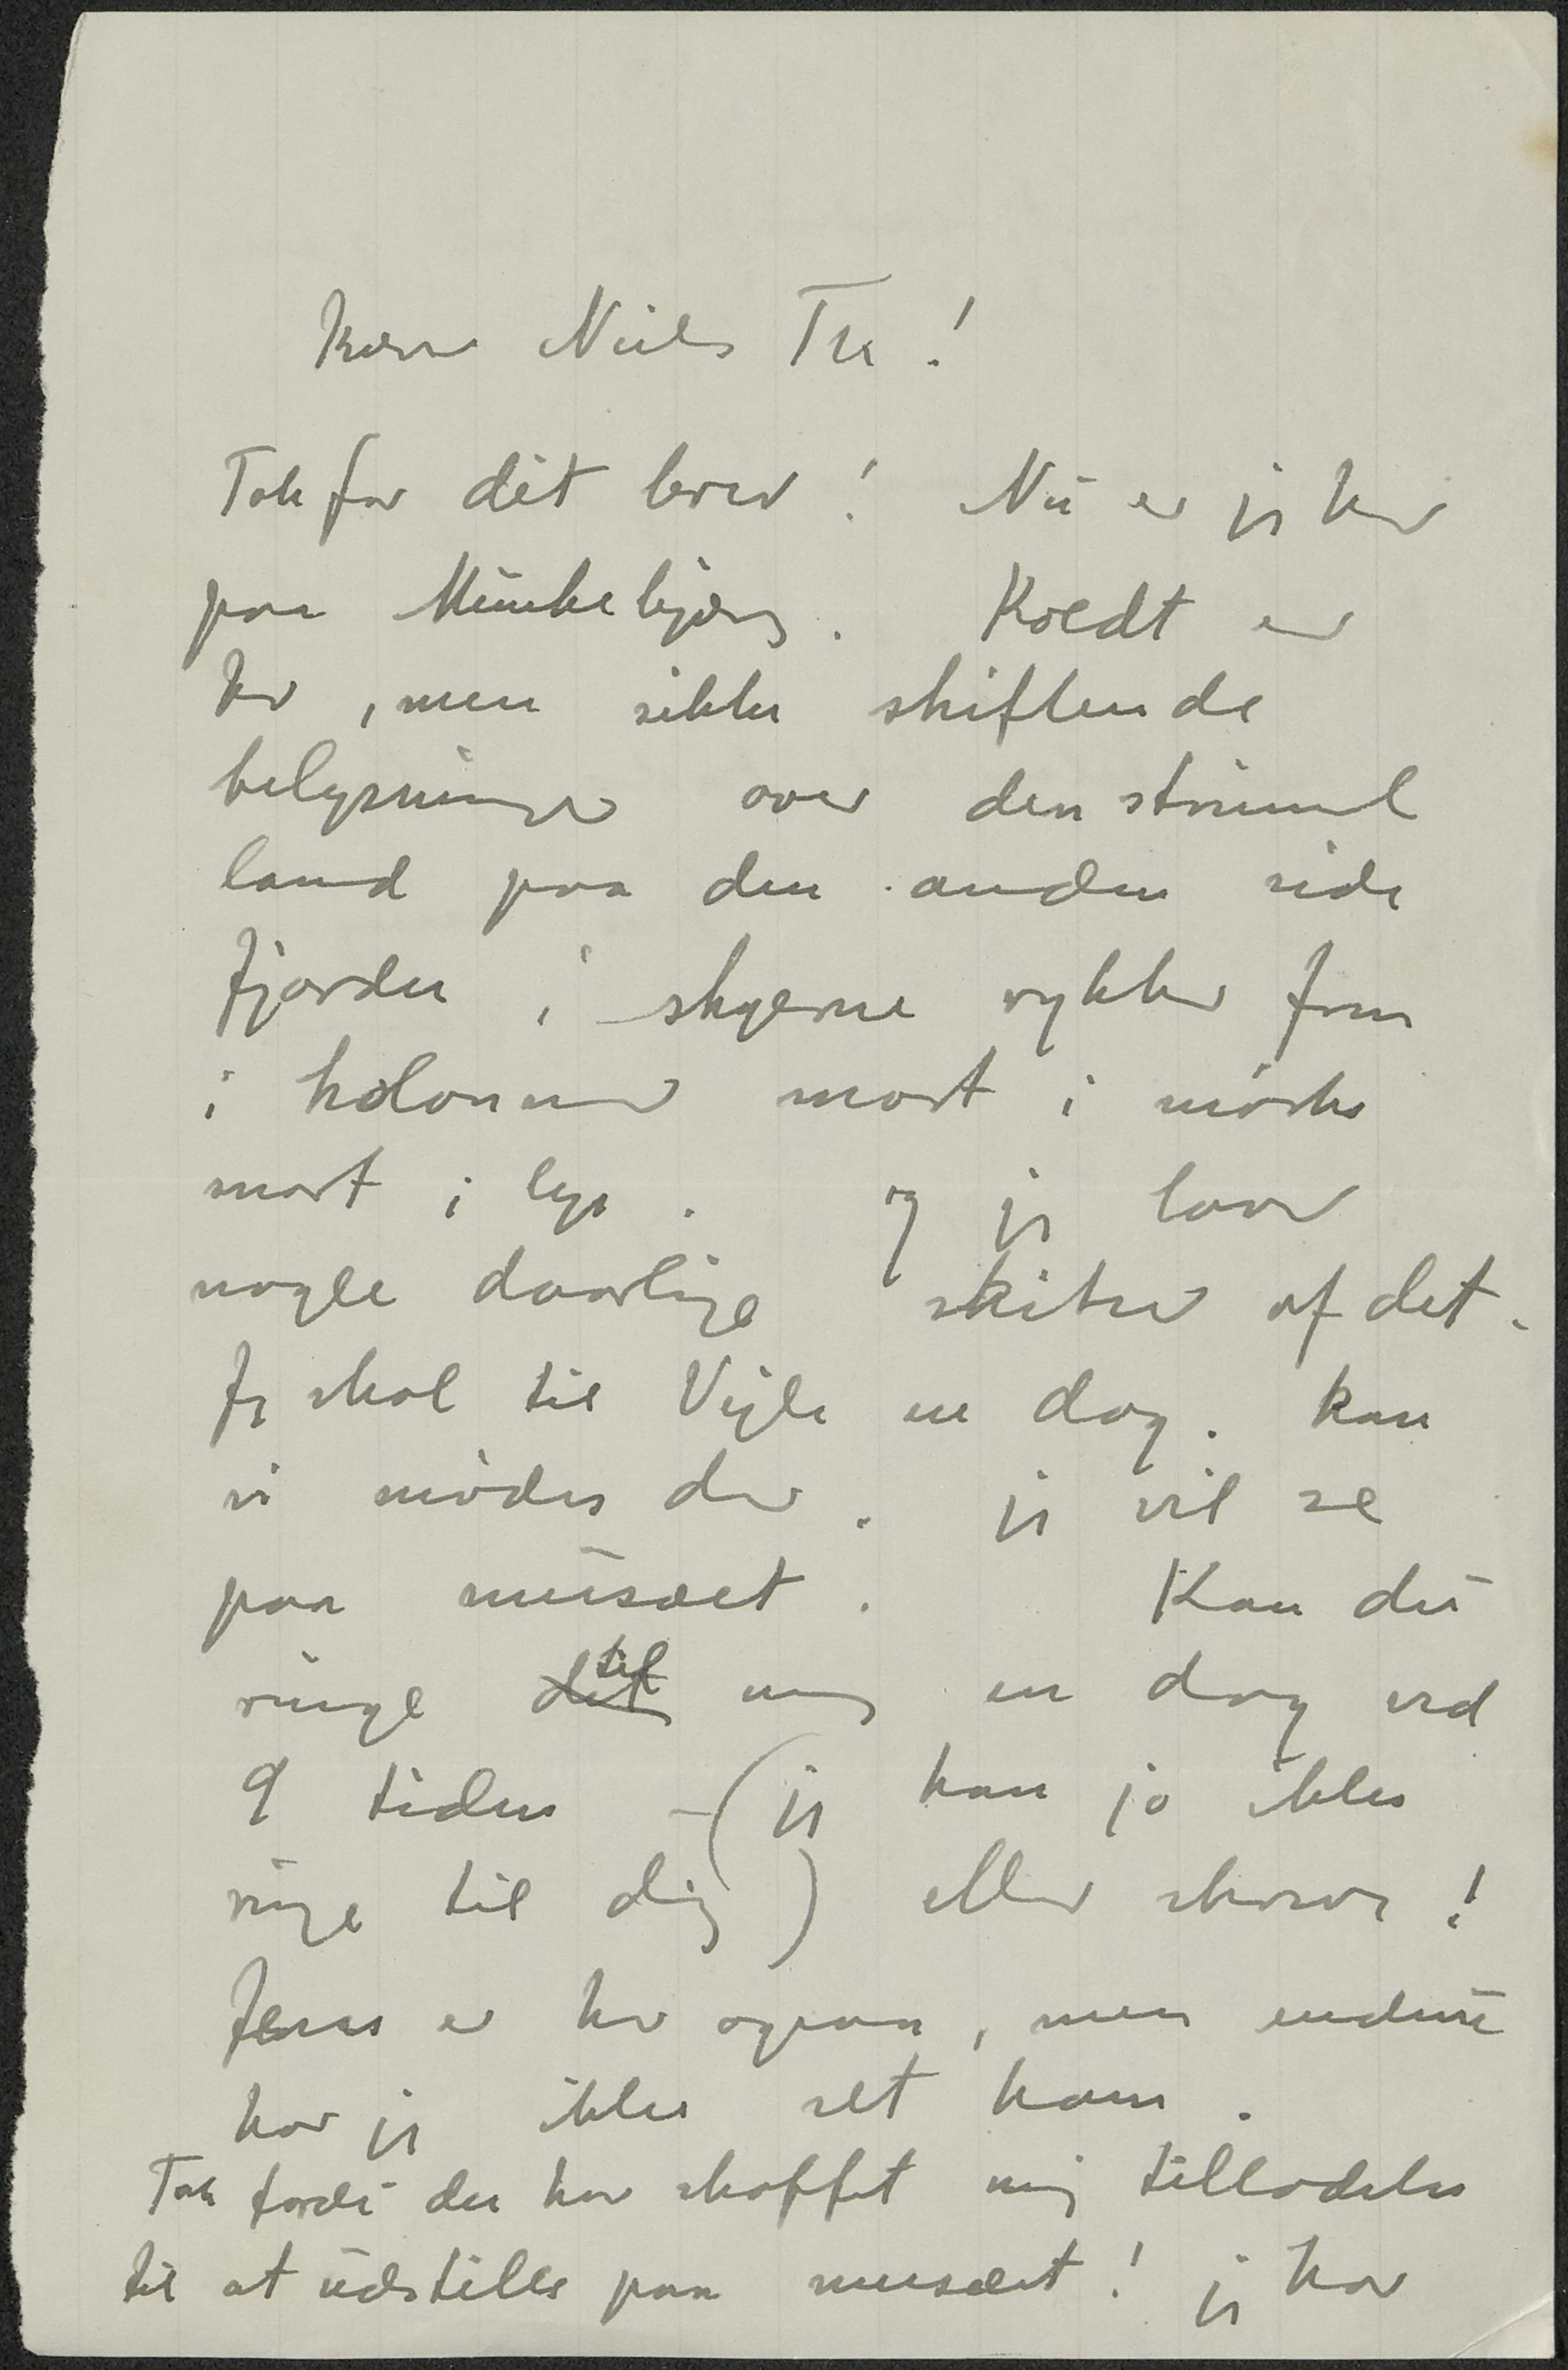 Kære Niels Th !
Tak for dit brev ! Nu er jeg her
paa Munkebjerg. Koldt er
her, men sikke skiftende
belysninger over den strimmel
land paa den anden side
fjorden, skyerne rykker frem
i kolonner snart i mörke
snart i lys. og jeg laver
nogle daarlige skitser af det.
Jeg skal til Vejle en dag. kan
vi mödes der. jeg vil se
paa musæet. Kan du
ringe til mig en dag ved
9 tiden - (jeg kan jo ikke
ringe til dig) eller skrive !
Jens er her ogsaa, men endnu
har jeg ikke set ham.
Tak fordi du har skaffet mig tilladelse
til at udstille paa musæet ! jeg har